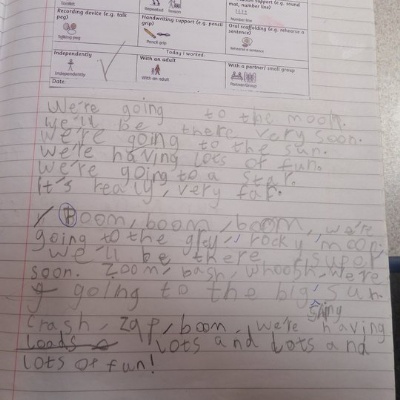 Recording device (e.g. talk peg)
Handwriting support (e.g. pencil grip)
Pencil grip
Number line
Oral scaffolding (e.g. rehearse a sentence)
Rehearse a sentence
Today I worked
Independently
Independently
With an adult
With an adult
With a partner/ small group
Date:
We're going to the moon.
We'll be there very soon.
We're going to the sun.
We're having lots of fun.
We're going to a star.
It's really, very far.
Boom, boom, boom, we're
going to the grey, rocky moon.
We'll be there super
soon. Zoom, bash, whoosh, we're
going to the big, shiny sun
Crash, zap, boom, we're having
loads lots and lots and
lots of fun!